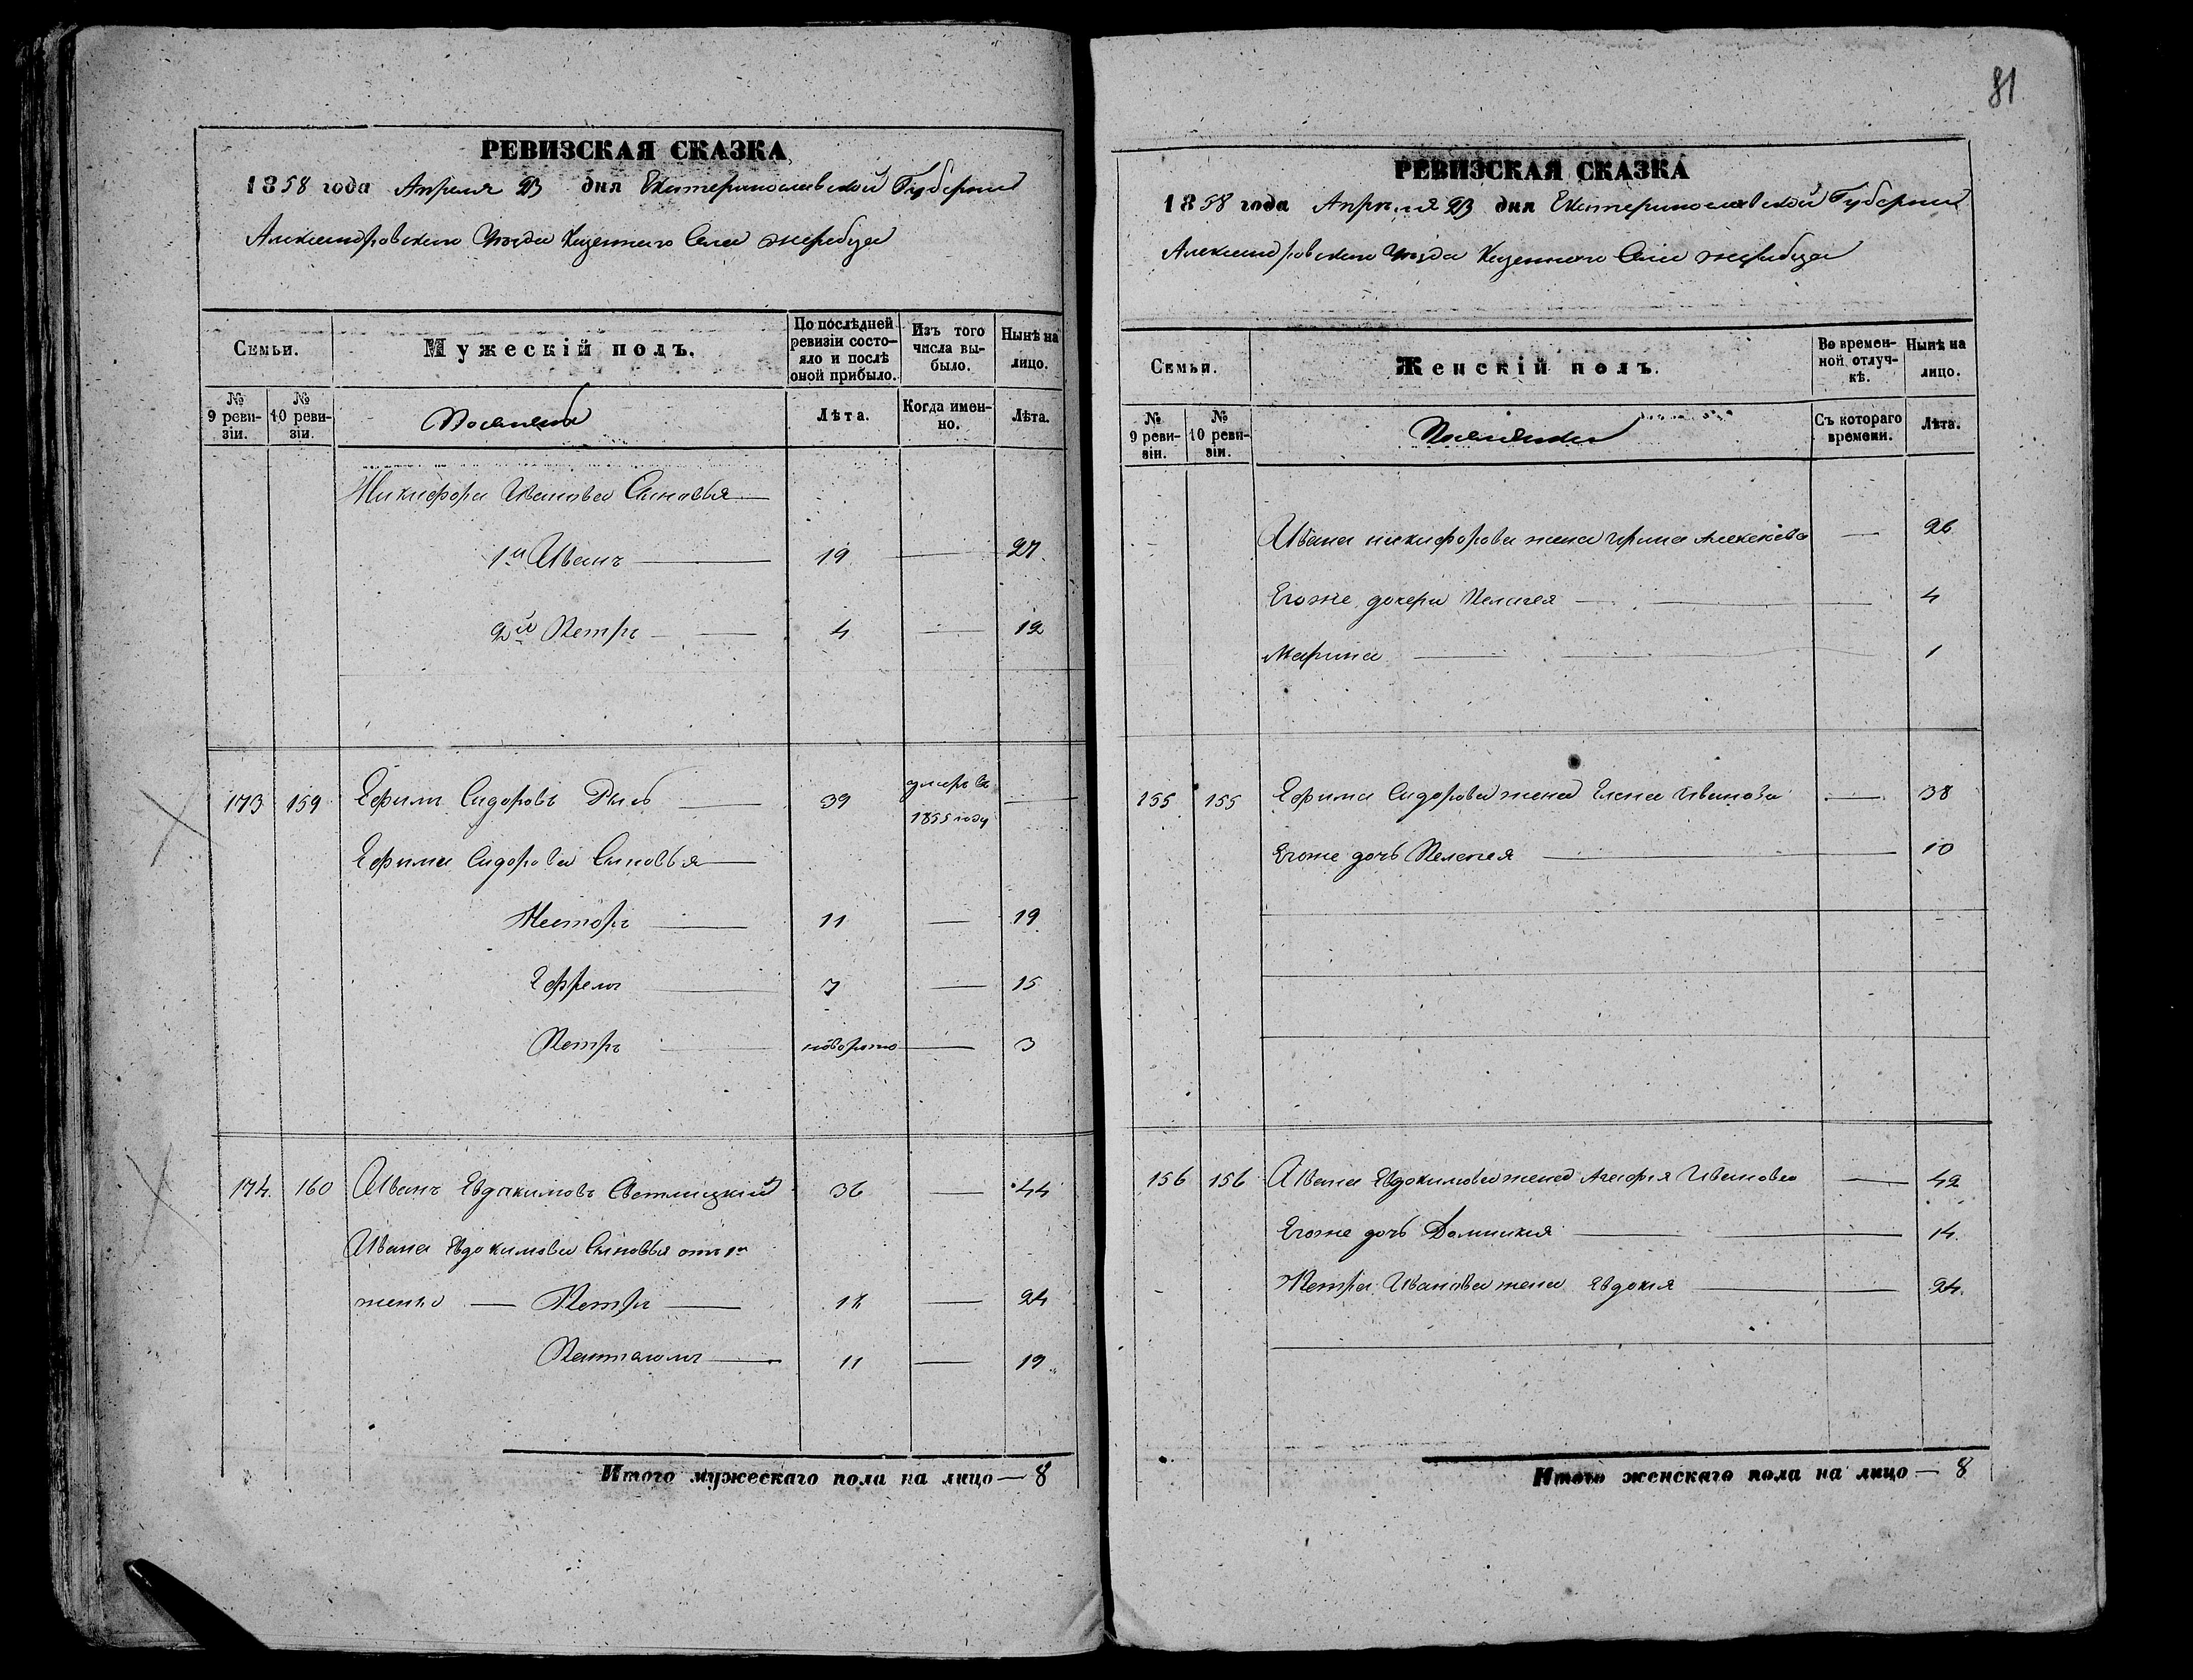 81
РЕВИЗСКАЯ СКАЗКА
1858 года Апреля 23 дня Екатеринославской Губернии
Александровского Уѣзда Казенного Села Жеребца
Семьи.
Мужескій полъ.
По послѣдней ревизіи состо-
яло и послѣ
оной прибыло.
Изъ того
числа вы-
было.
Нынѣ на
лицо.
№
9 реви-
зіи.
№
10 реви-
зіи.
Лѣта.
Когда имен-
но.
Лѣта.
Никифора Иванова Сыновья
1й Иванъ 19 — 27
2й Петръ 4 — 12
173 159 Ефимъ Сидоровъ 39 умеръ въ —
1855 году
Ефима Сидорова Сыновья
Несторъ 11 — 19
Ефремъ 7 — 15
Петръ новорожд — 3
174 160 Иванъ Евдокимовъ Светлицкий 36 — 44
Ивана Евдокимова Сыновья отъ 1й
жены — Петръ 18 — 24
Пантелимонъ 11 — 19
Итого мужескаго пола на лицо — 8
РЕВИЗСКАЯ СКАЗКА
1858 года Апреля 23 дня Екатеринославской Губернии
Александровского Уѣзда Казенного Села Жеребца
Семьи.
Женскій полъ.
Во времен-
ной отлуч-
кѣ.
Нынѣ на
лицо.
№
9 реви-
зіи.
№
10 реви-
зіи.
Съ котораго
времени.
Лѣта.
Ивана Никифорова жена Ирина Алексеева — 26
Егоже дочери Пелагея — 4
Марина — 1
155 155 Ефима Сидорова жена Елена Иванова — 38
Егоже дочь Пелагея — 10
156 156 Ивана Евдокимова жена Агафия Иванова — 42
Егоже дочь Домникия — 14
Петра Иванова жена Евдокия — 24
Итого женскаго пола на лицо — 8